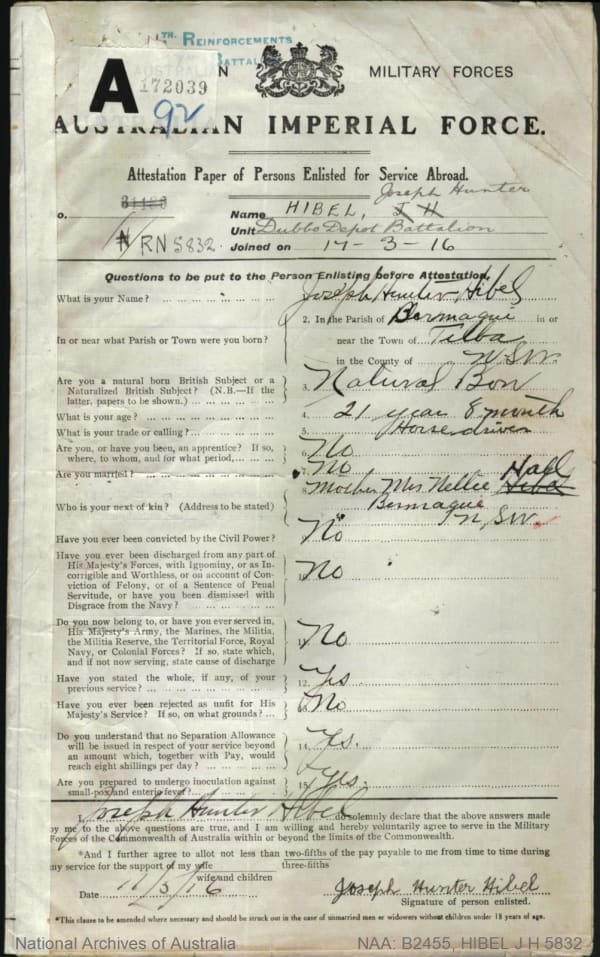 TH. REINFORCEMENTS
BATTAL
A
172039
92
N MILITARY FORCES
AUSTRALIAN IMPERIAL FORCE.
Attestation Paper of Persons Enlisted for Service Abroad.
Joseph Hunter
o. Name HIBEL, J H
RN 5832. Unit Dubbo Depot Battalion
Joined on 17-3-16
Questions to be put to the Person Enlisting before Attestation.
What is your Name? Joseph Hunter Hibel
2. In the Parish of Bermagui in or
In or near what Parish or Town were you born? near the Town of Tilba
in the County of N.S.W.
Are you a natural born British Subject or a
Naturalized British Subject? (N.B.—If the 3. Natural Bon
latter, papers to be shown.)
What is your age? 4. 21 year 8 month
What is your trade or calling? 5. Horse driver
Are you, or have you been, an apprentice? If so, 6. No
where, to whom, and for what period,
Are you married? 7. No
Hall
8. Mother Mrs Nellie Hibel
Who is your next of kin? (Address to be stated) Bermague
N.S.W.
Have you ever been convicted by the Civil Power? No
Have you ever been discharged from any part of
His Majesty's Forces, with Ignominy, or as In-
corrigible and Worthless, or on account of Con- No
viction of Felony, or of a Sentence of Penal
Servitude, or have you been dismissed with
Disgrace from the Navy?
Do you now belong to, or have you ever served in,
His Majesty's Army, the Marines, the Militia,
the Militia Reserve, the Territorial Force, Royal 11. No
Navy, or Colonial Forces? If so, state which,
and if not now serving, state cause of discharge
Have you stated the whole, if any, of your 12. Yes
previous service?
Have you ever been rejected as unfit for His No
Majesty's Service? If so, on what grounds?
Do you understand that no Separation Allowance
will be issued in respect of your service beyond 14. Yes.
an amount which, together with Pay, would
reach eight shillings per day?
Are you prepared to undergo inoculation against 15. Yes.
small-pox and enteric fever?
I, Joseph Hunter Hibel do solemnly declare that the above answers made
by me to the above questions are true, and I am willing and hereby voluntarily agree to serve in the Military
Forces of the Commonwealth of Australia within or beyond the limits of the Commonwealth.
*And I further agree to allot not less than two-fifths of the pay payable to me from time to time during
three-fifths
my service for the support of my wife
wife and children
Date 11/3/16 Joseph Hunter Hibel
Signature of person enlisted.
*This clause to be amended where necessary and should be struck out in the case of unmarried men or widowers without children under 18 years of age.
National Archives of Australia NAA: B2455, HIBEL J H 5832